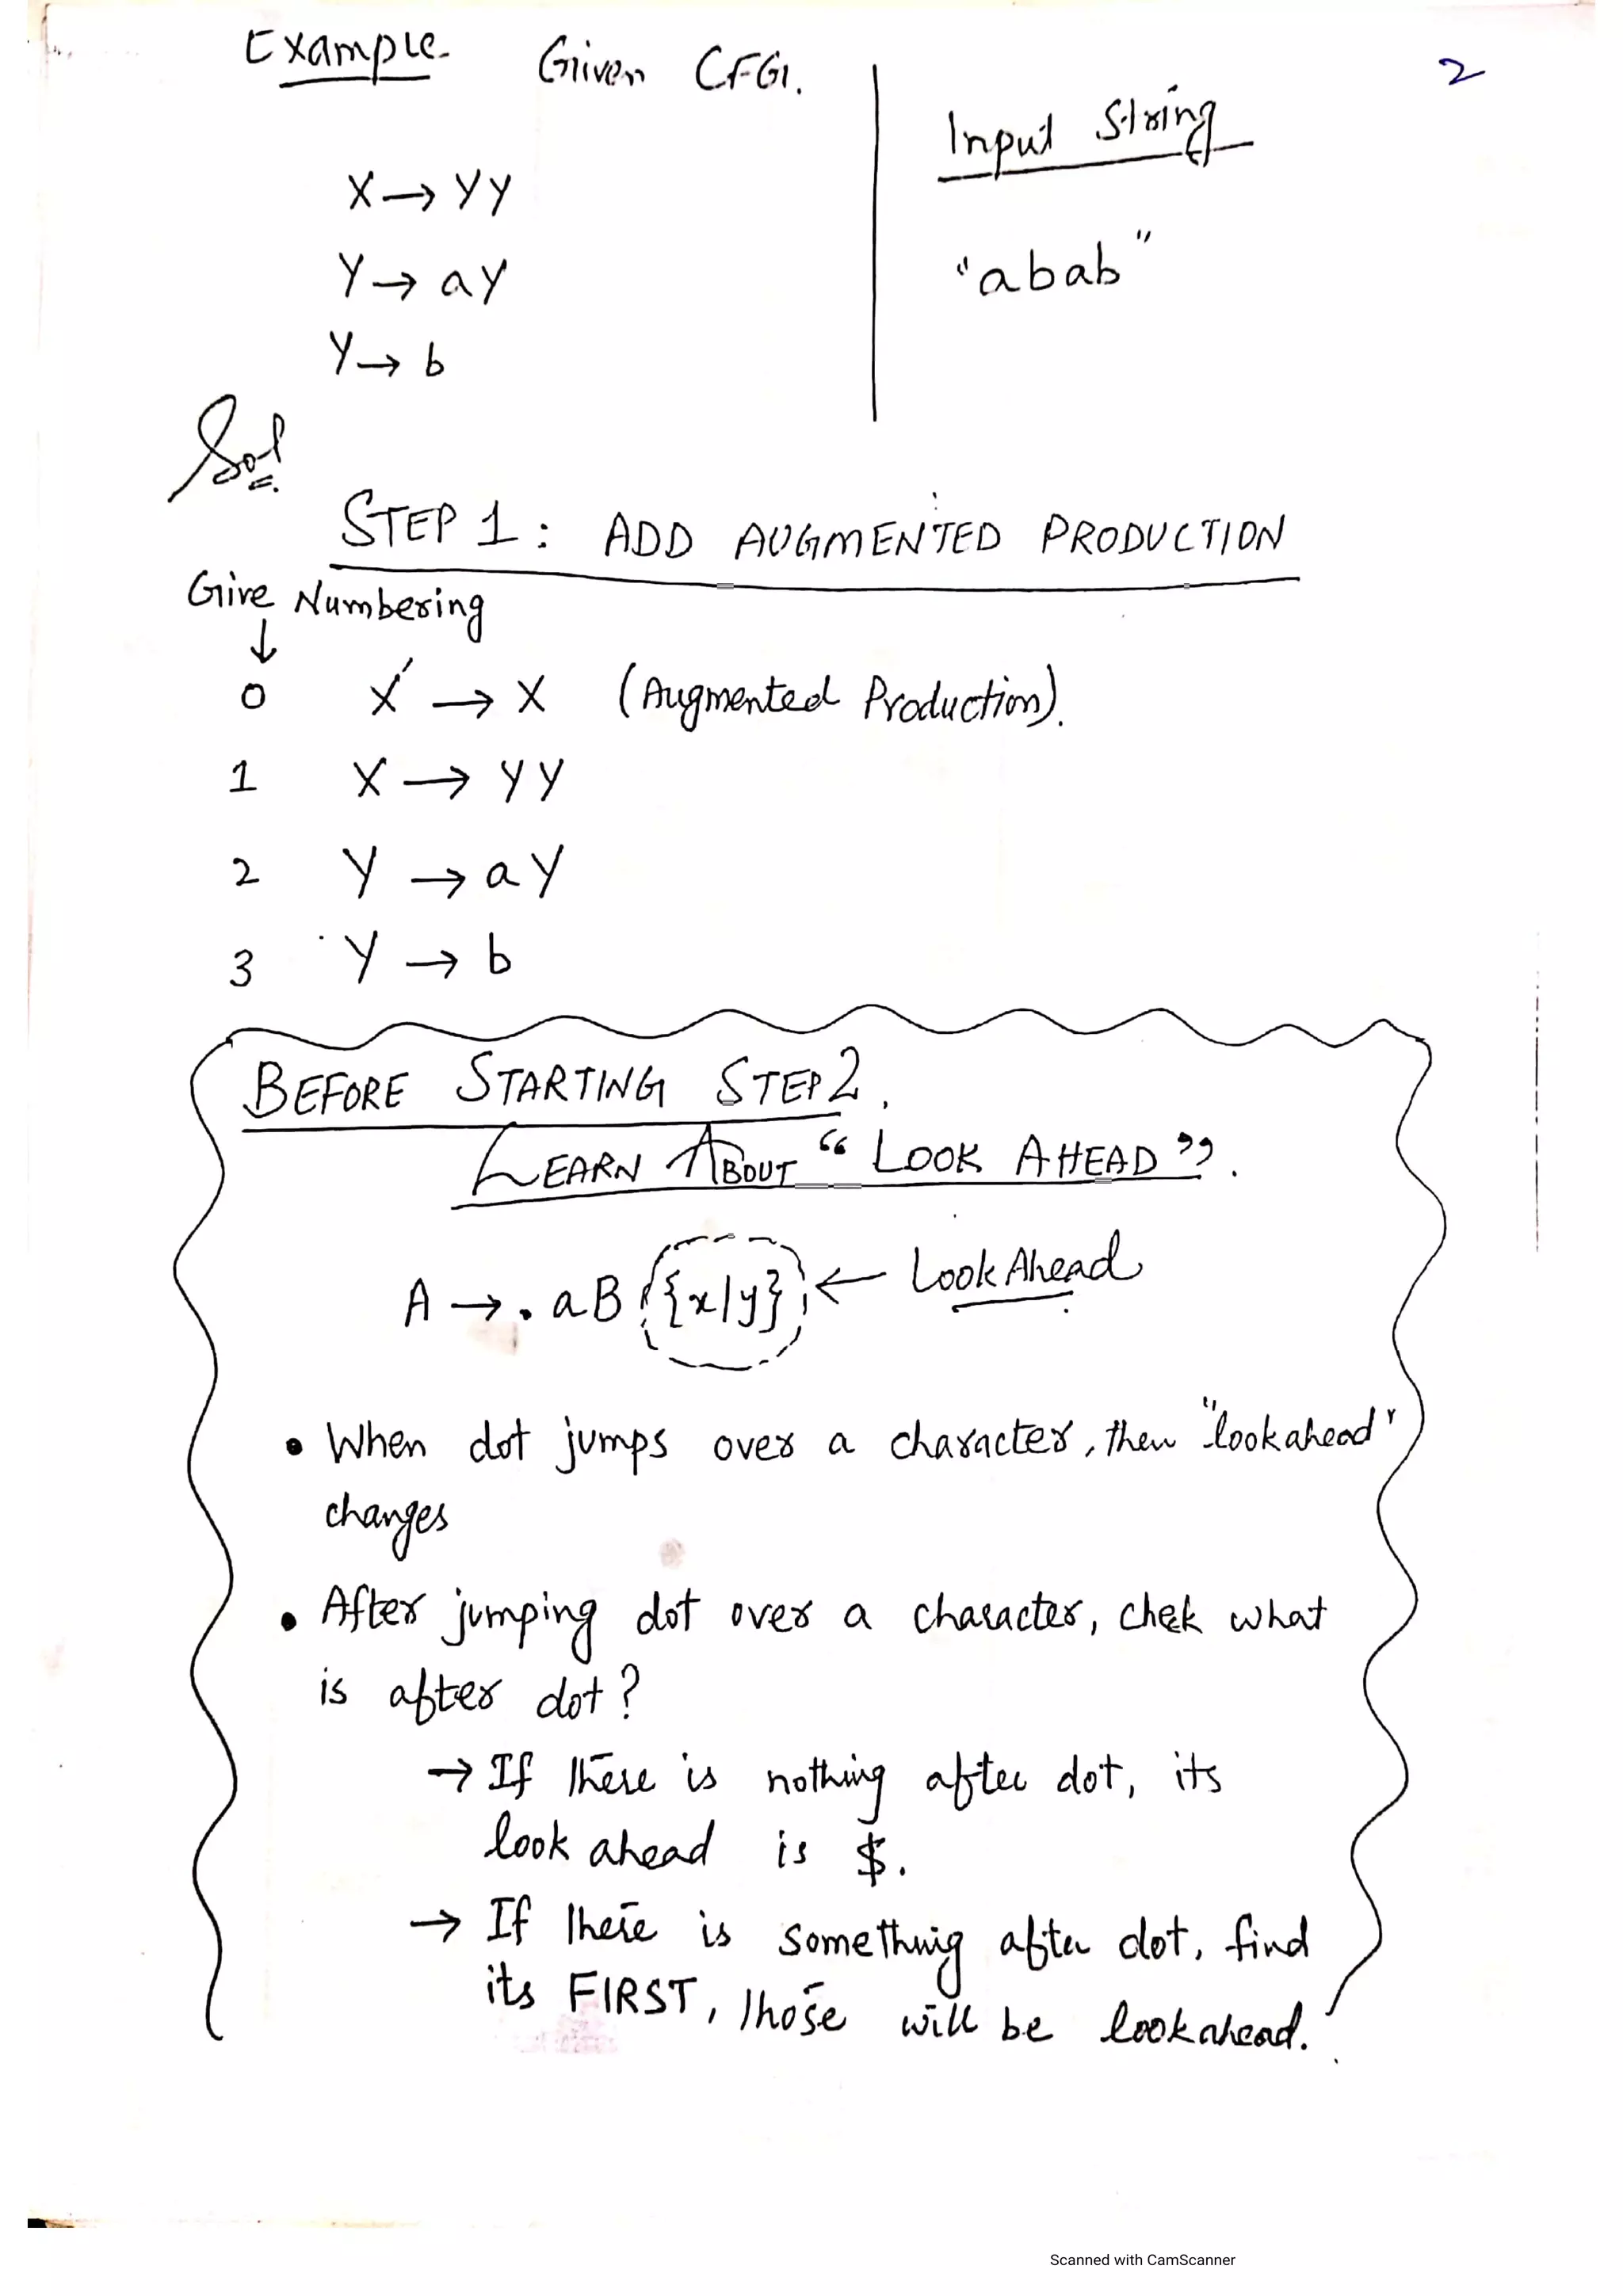 Example Given CFG.
2
Input String
X → YY
Y → aY
"abab"
Y → b
Sol
STEP 1: ADD AUGMENTED PRODUCTION
Give Numbering
↓
0 X' → X (Augmented Production).
1 X → YY
2 Y → aY
3 Y → b
BEFORE STARTING STEP 2.
LEARN ABOUT "LOOK AHEAD".
A → . aB {x/y} ← Look Ahead
• When dot jumps over a character, then "lookahead"
changes
• After jumping dot over a character, chek what
is after dot?
→ If there is nothing after dot, its
look ahead is $.
→ If there is something after dot, find
its FIRST, those will be lookahead.
Scanned with CamScanner